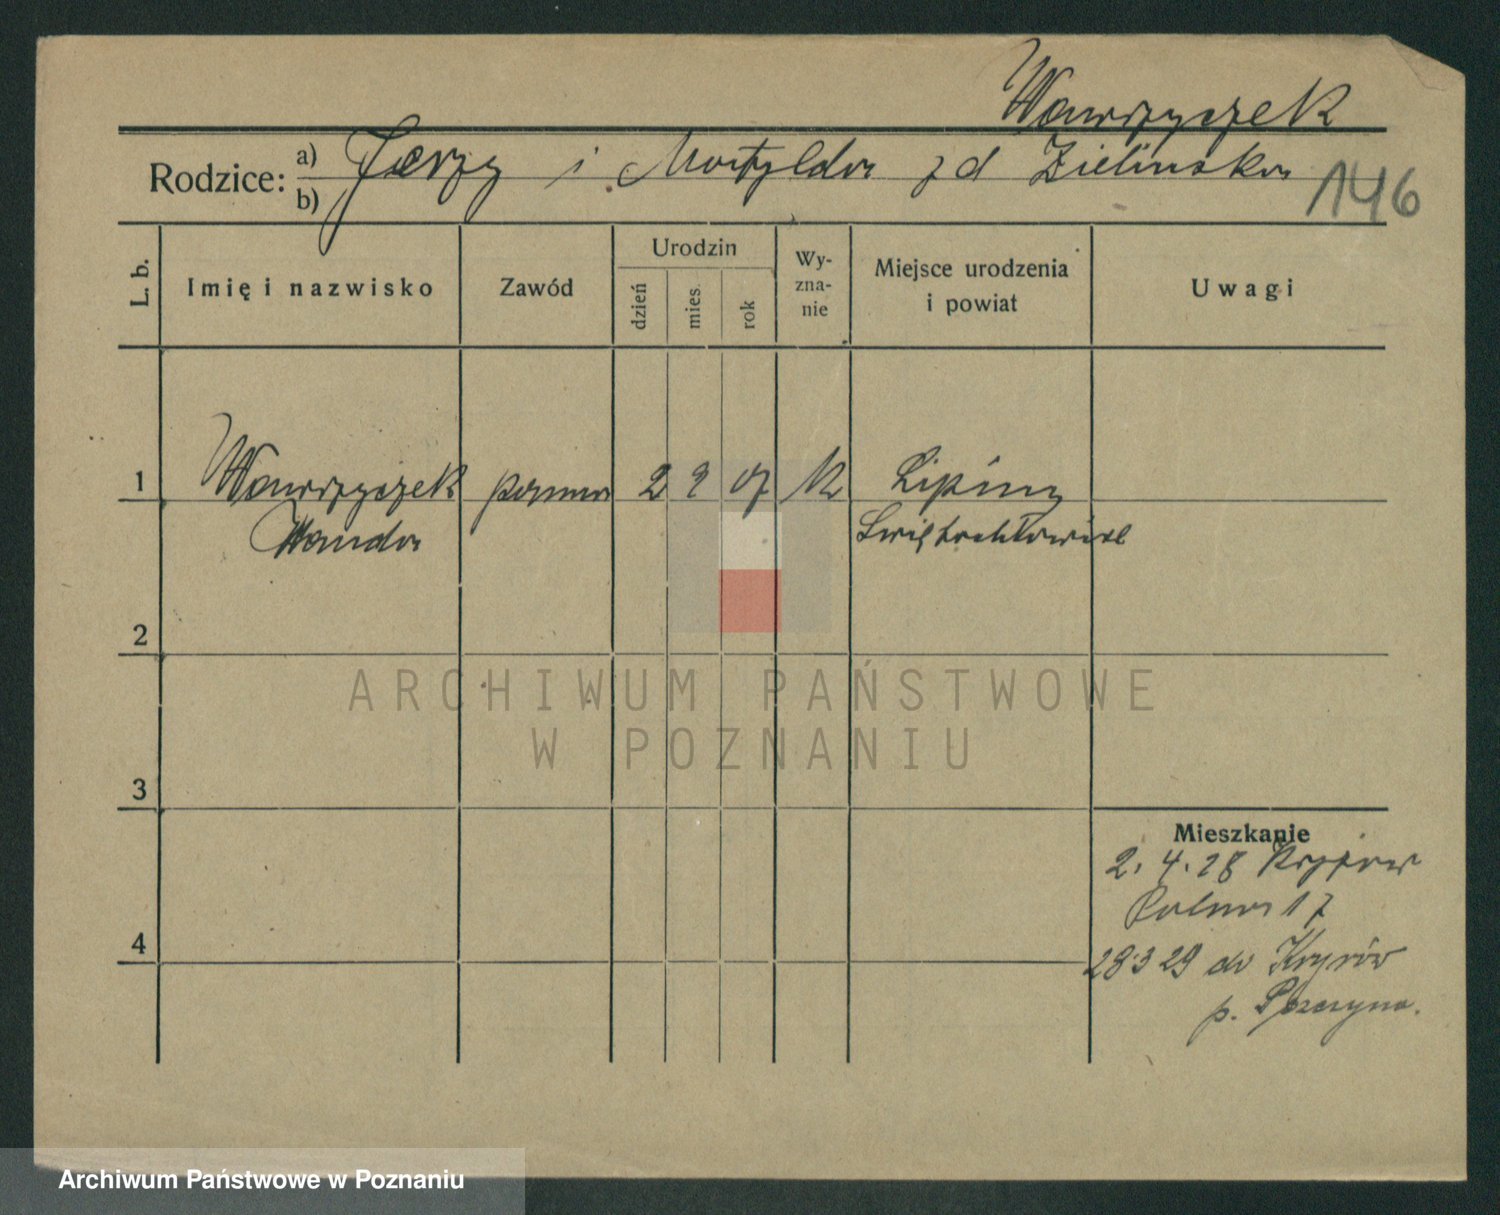 Wawrzyczek
Rodzice: a) Jerzy i Matylda zd Zielińska
b)
146
L. b.
Imię i nazwisko
Zawód
Urodzin
dzień
mies.
rok
Wy-
zna-
nie
Miejsce urodzenia
i powiat
Uwagi
1 Wawrzyczek panna 2 2 07 K Lipiny
Wanda Świętochłowice
2
ARCHIWUM PAŃSTWOWE
W POZNANIU
3
Mieszkanie
2. 4. 28
Polna 17
4
28 3 29 do Kryrów
p. Pszczyna.
Archiwum Państwowe w Poznaniu